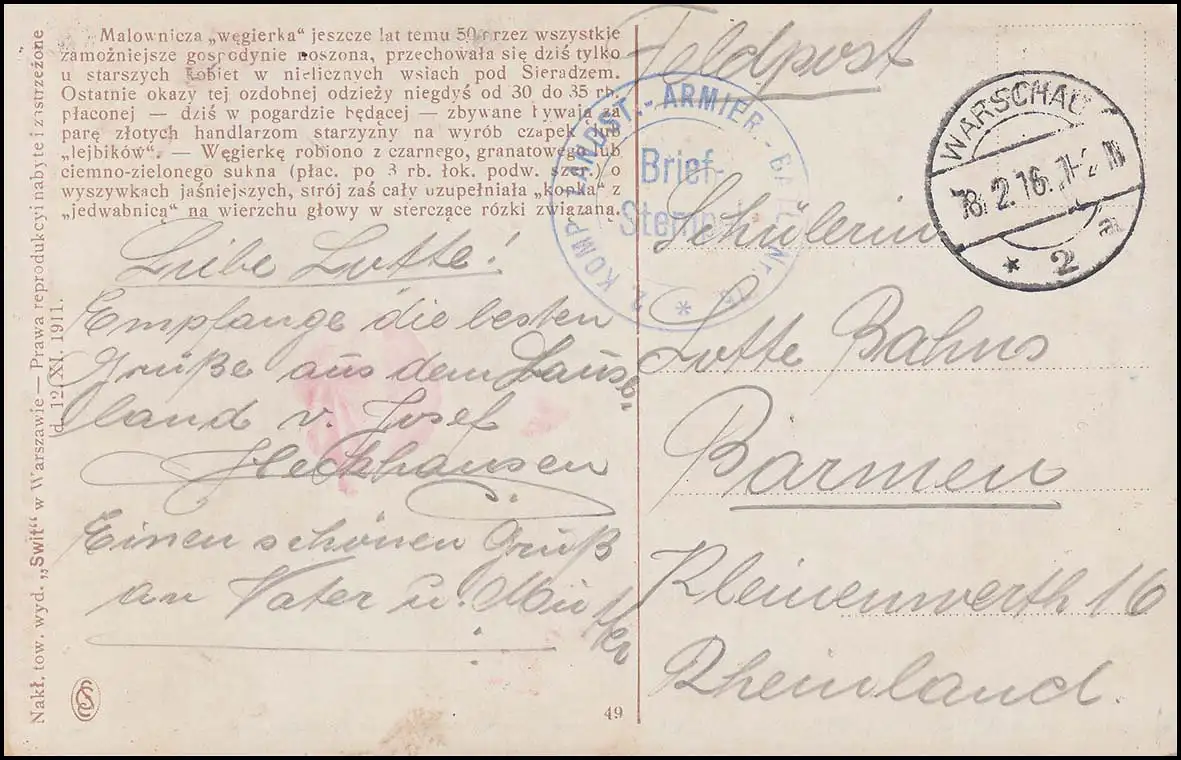 Malownicza „węgierka" jeszcze lat temu 50 przez wszystkie
zamożniejsze gospodynie noszona, przechowała się dziś tylko
u starszych kobiet w nielicznych wsiach pod Sieradzem.
Ostatnie okazy tej ozdobnej odzieży niegdyś od 30 do 35 rb.
płaconej — dziś w pogardzie będącej — zbywane bywają za
parę złotych handlarzom starzyzny na wyrób czapek lub
„lejbików". — Węgierkę robiono z czarnego, granatowego lub
ciemno-zielonego sukna (płac. po 3 rb. łok. podw. szer.) o
wyszywkach jaśniejszych, strój zaś cały uzupełniała „kopka" z
„jedwabnicą" na wierzchu głowy w sterczące rózki związana.
Liebe Lotte!
Empfange die besten
Grüße aus dem Lause-
land v. Josef
Heckhausen
Einen schönen Gruß
an Vater u. Mutter
Nakł. tow. wyd. „Świt" w Warszawie — Prawa reprodukcyi nabyte i zastrzeżone
d. 12/XI. 1911.
49
Feldpost
2 KOMP. LANDST.-ARMIER.-BATL. Nr.
Brief-
Stempel
WARSCHAU
18.2.16.
* 2 a
Schülerin
Lotte Bahns
Barmen
Kleinenwerth 16
Rheinland.